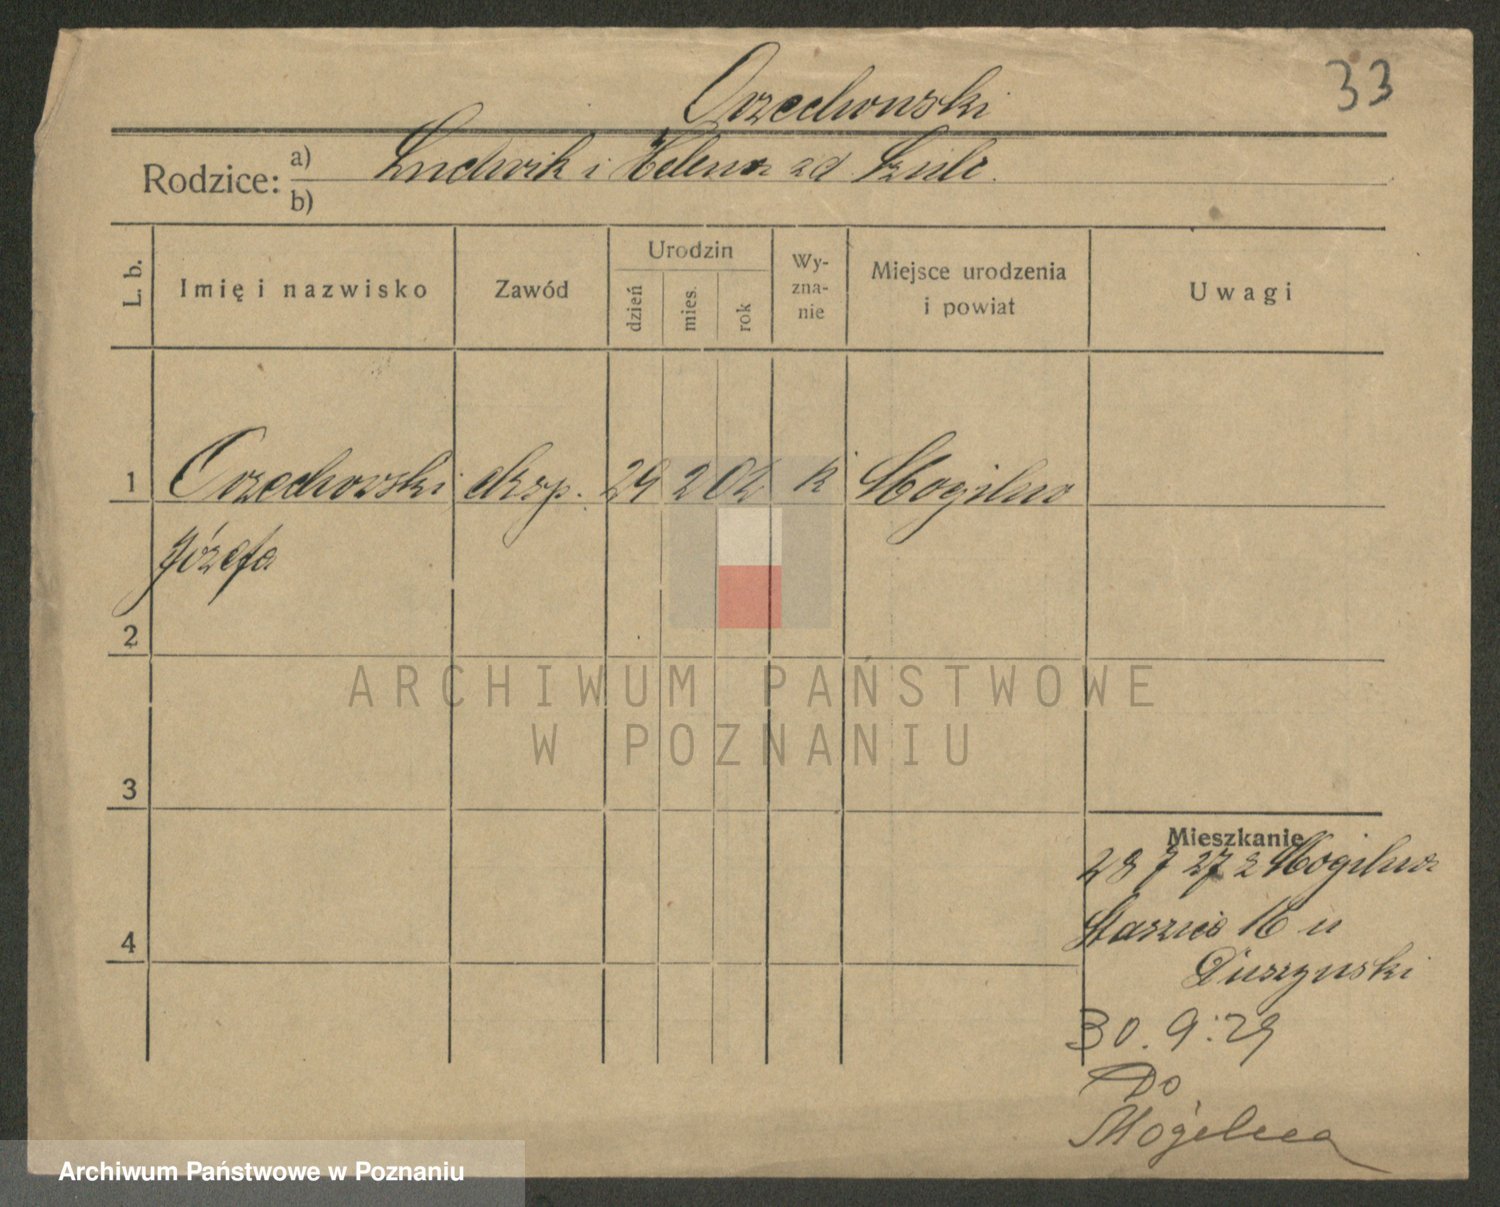 33
Orzechowski
Rodzice: a) Ludwik i Helena zd Szulc.
b)
L. b.
Imię i nazwisko
Zawód
Urodzin
dzień
mies.
rok
Wy-
zna-
nie
Miejsce urodzenia
i powiat
Uwagi
1 Orzechowski eksp. 29 2 02 k Mogilno
Józefa
2
3
4
Mieszkanie
28 7 27 z Mogilna
Staszica 16 u
Duszynski
30. 9. 29
Do
Mogilna
ARCHIWUM PAŃSTWOWE
W POZNANIU
Archiwum Państwowe w Poznaniu